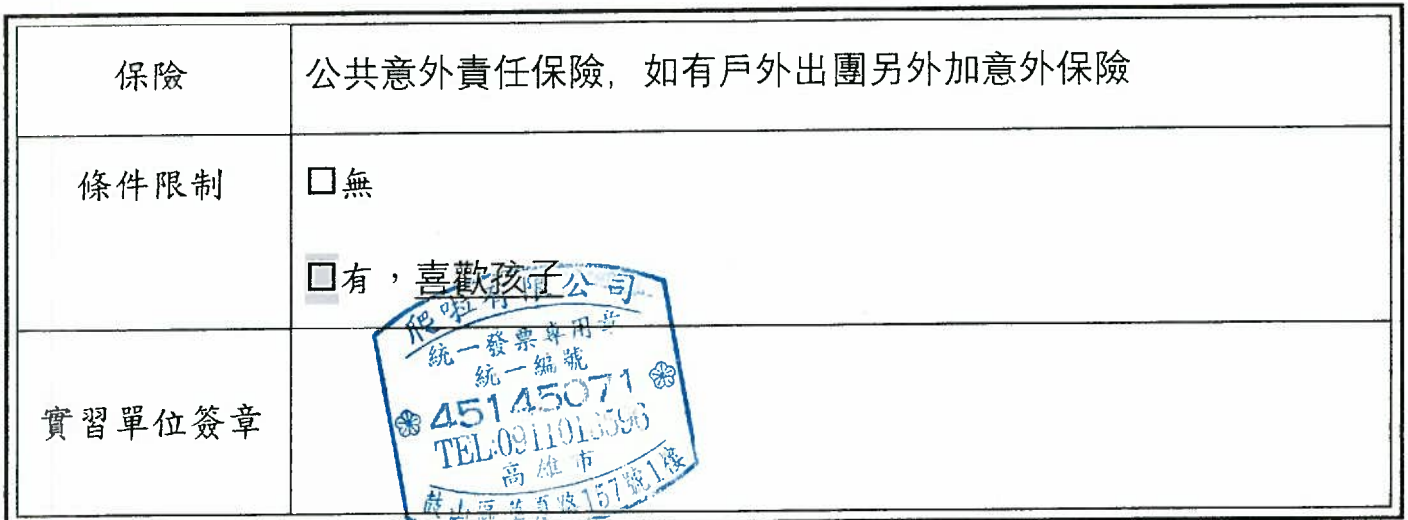 保險
公共意外責任保險, 如有戶外出團另外加意外保險
條件限制
□無
□有，喜歡孩子
實習單位簽章
爬啦有限公司
統一發票專用章
統一編號
45145071
TEL:0911013596
高雄市
鼓山區 路157號1樓